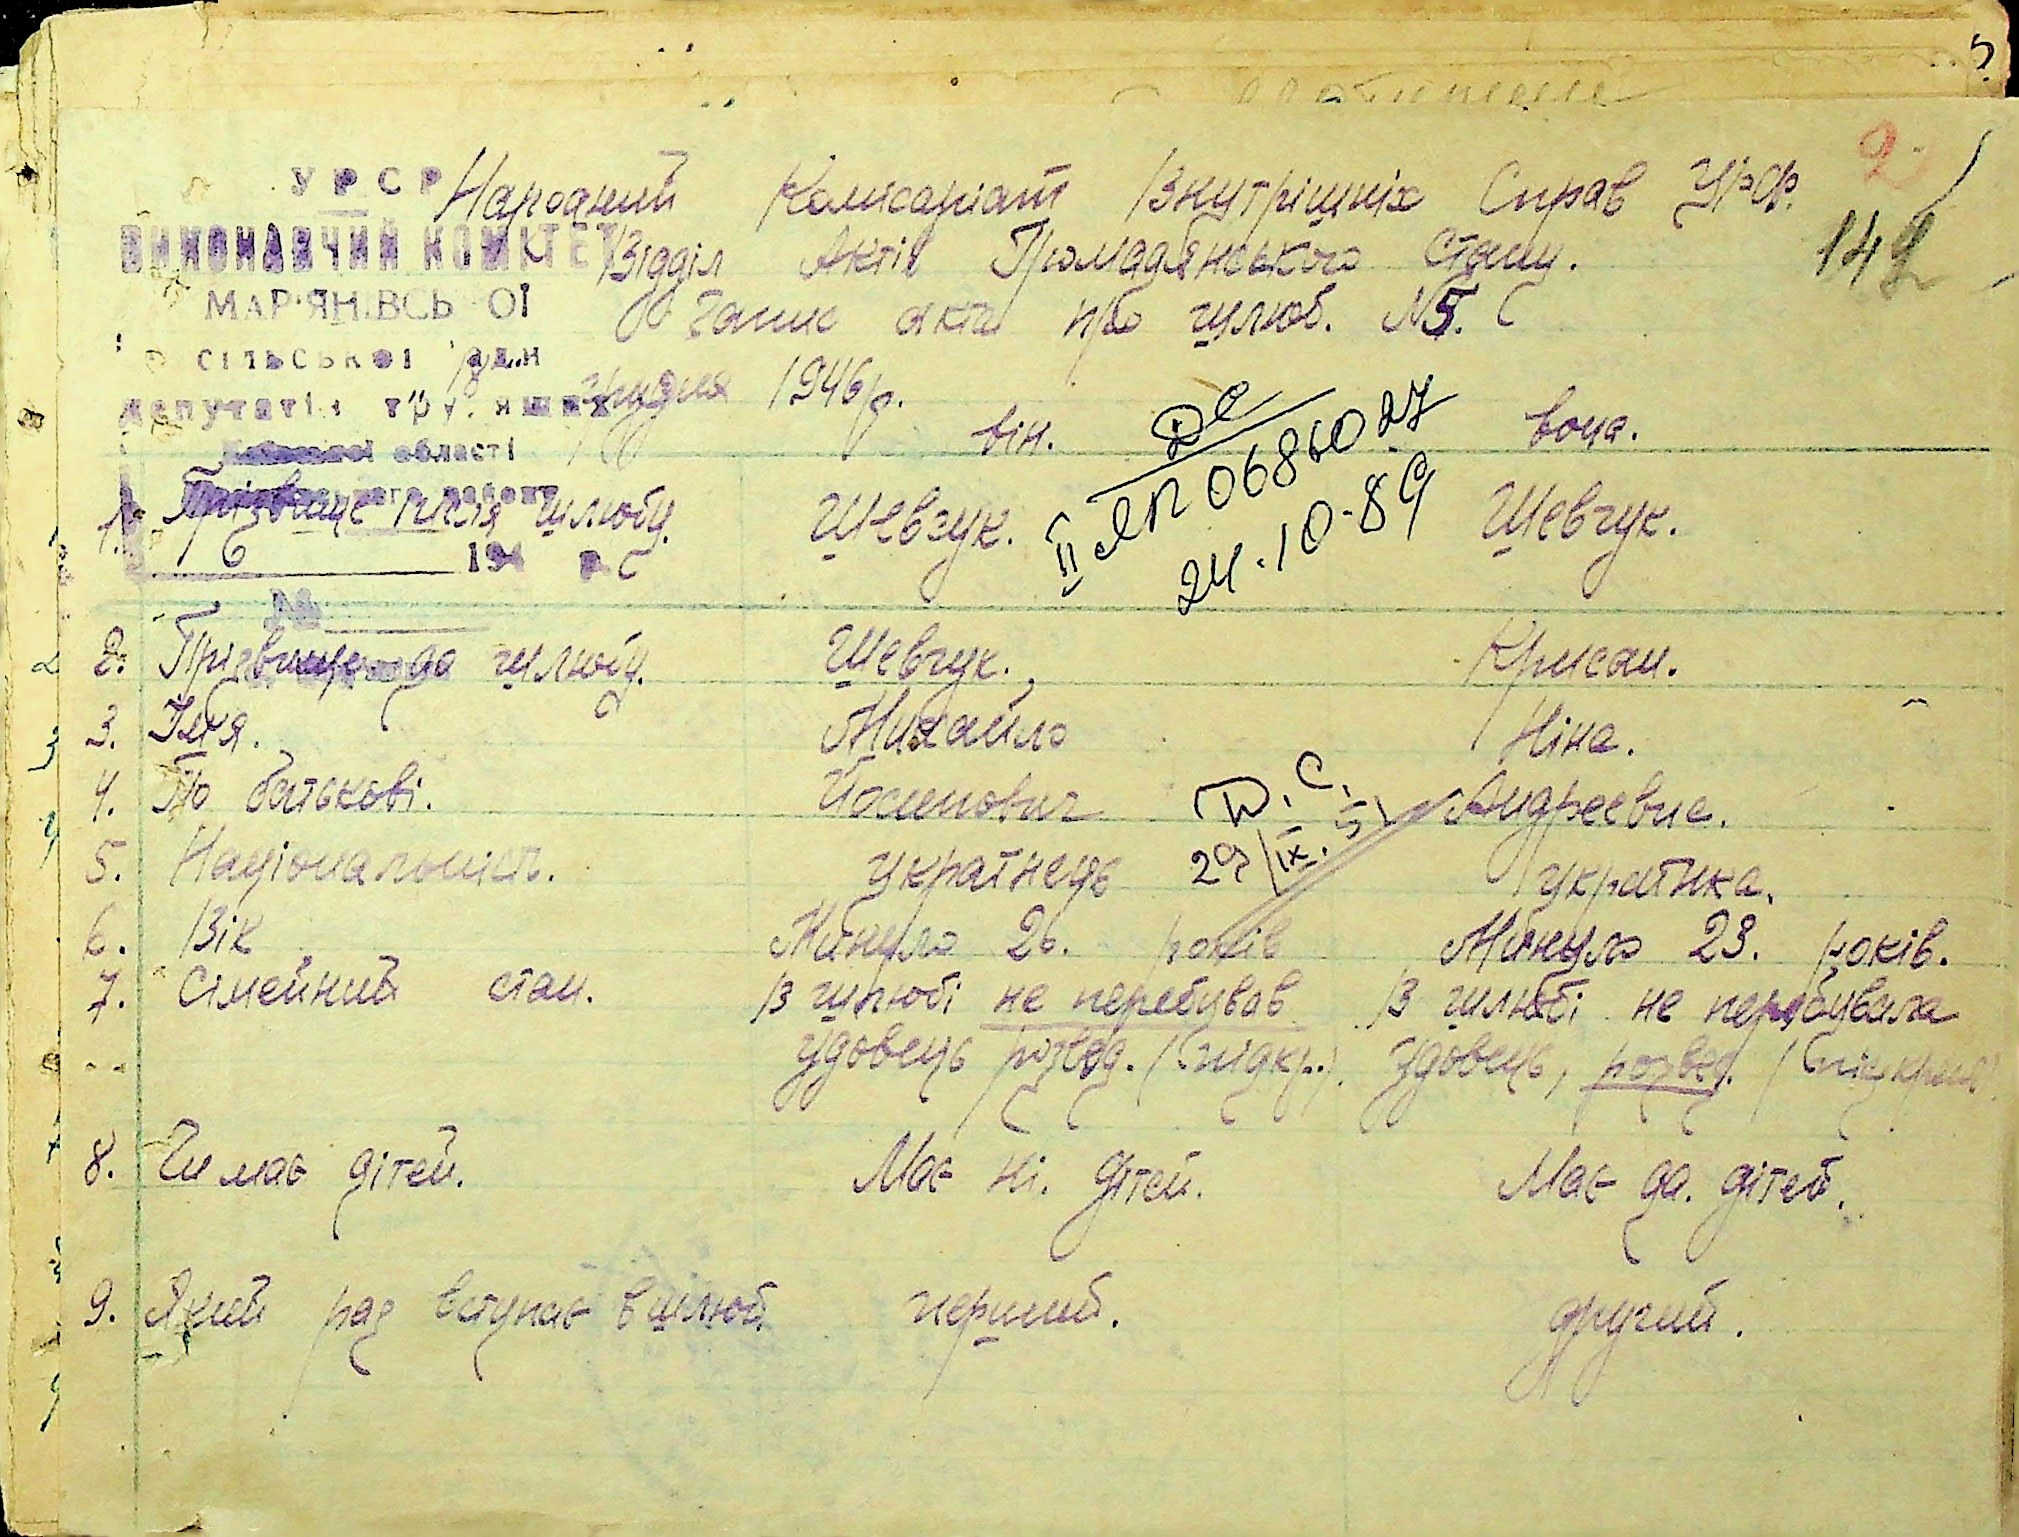 2
149
УРСР
ВИКОНАВЧИЙ КОМІТЕТ
МАР'ЯНІВСЬ ОЇ
СІЛЬСЬКОЇ
депутатів
області
194 р
№
Народний Комісаріат Внутрішніх Справ УРСР.
Відділ Актів Громадянського Стану.
Запис акта про шлюб. №5.
Грудня 1946р.
він. вона.
ДС
II ЯП 0684027
24.10-89
1. Прізвище після шлюбу. Шевчук. Шевчук.
2. Прізвище до шлюбу. Шевчук. Крисан.
3. Ім'я. Михайло Ніна.
4. По батькові. Йосипович Андреевна.
Д. С.
29/IX.51
5. Національність. українець українка.
6. Вік Минуло 26. років Минуло 23. років.
7. Сімейний стан. В шлюбі не перебував В шлюбі не перебувала
удовець розвед. (підкр.). Удовець, розвед.
8. Чи має дітей. Має ні. дітей. Має да. дітей.
9. Який раз вступає в шлюб. перший. другий.